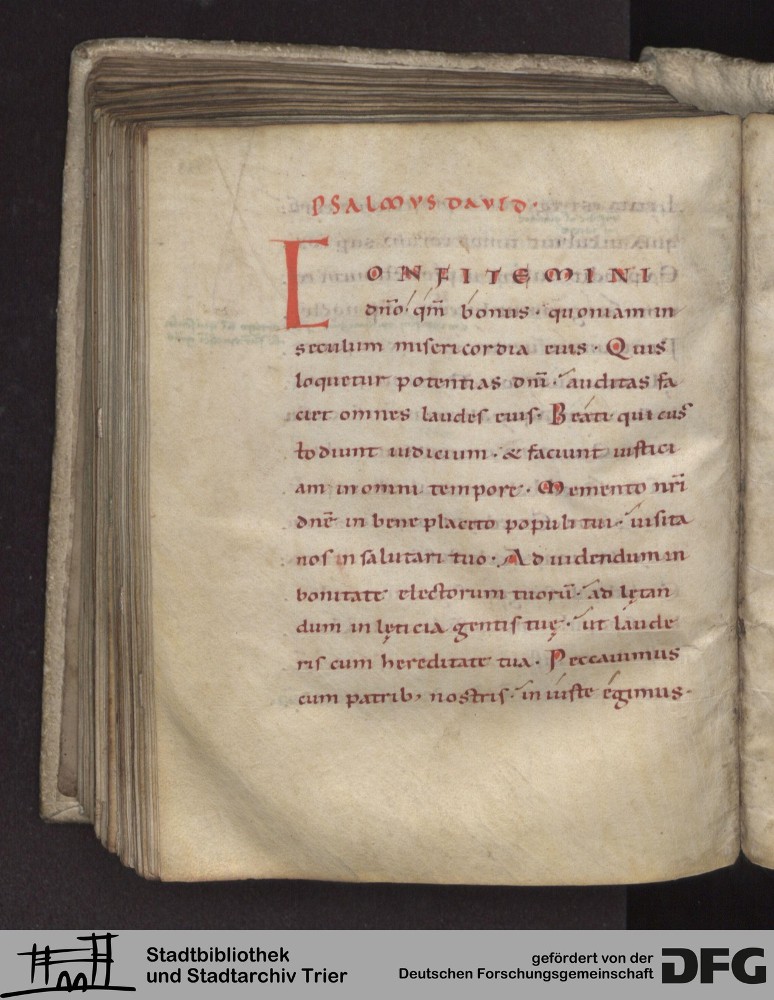 PSALMVS DAVID·
CONFITEMINI
dn̄o qm̄ bonus· quoniam in
seculum misericordia eius· Quis
loquetur potentias dn̄i· auditas fa
ciet omnes laudes eius· Beati qui cus
todiunt iudicium· & faciunt iustici
am in omni tempore· Memento nr̄i
dn̄e in bene placito populi tui· uisita
nos in salutari tuo· Ad uidendum in
bonitate electorum tuorū· ad lętan
dum in lęticia gentis tuę· ut laude
ris cum hereditate tua· Peccauimus
cum patrib; nostris· in iuste egimus·
Stadtbibliothek
und Stadtarchiv Trier
gefördert von der
Deutschen Forschungsgemeinschaft
DFG